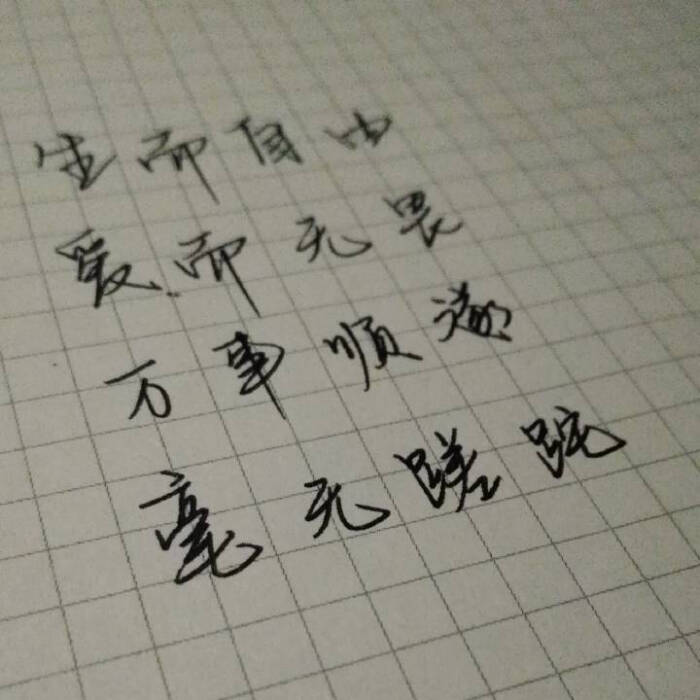 生而自由
爱而无畏
万事顺遂
毫无蹉跎